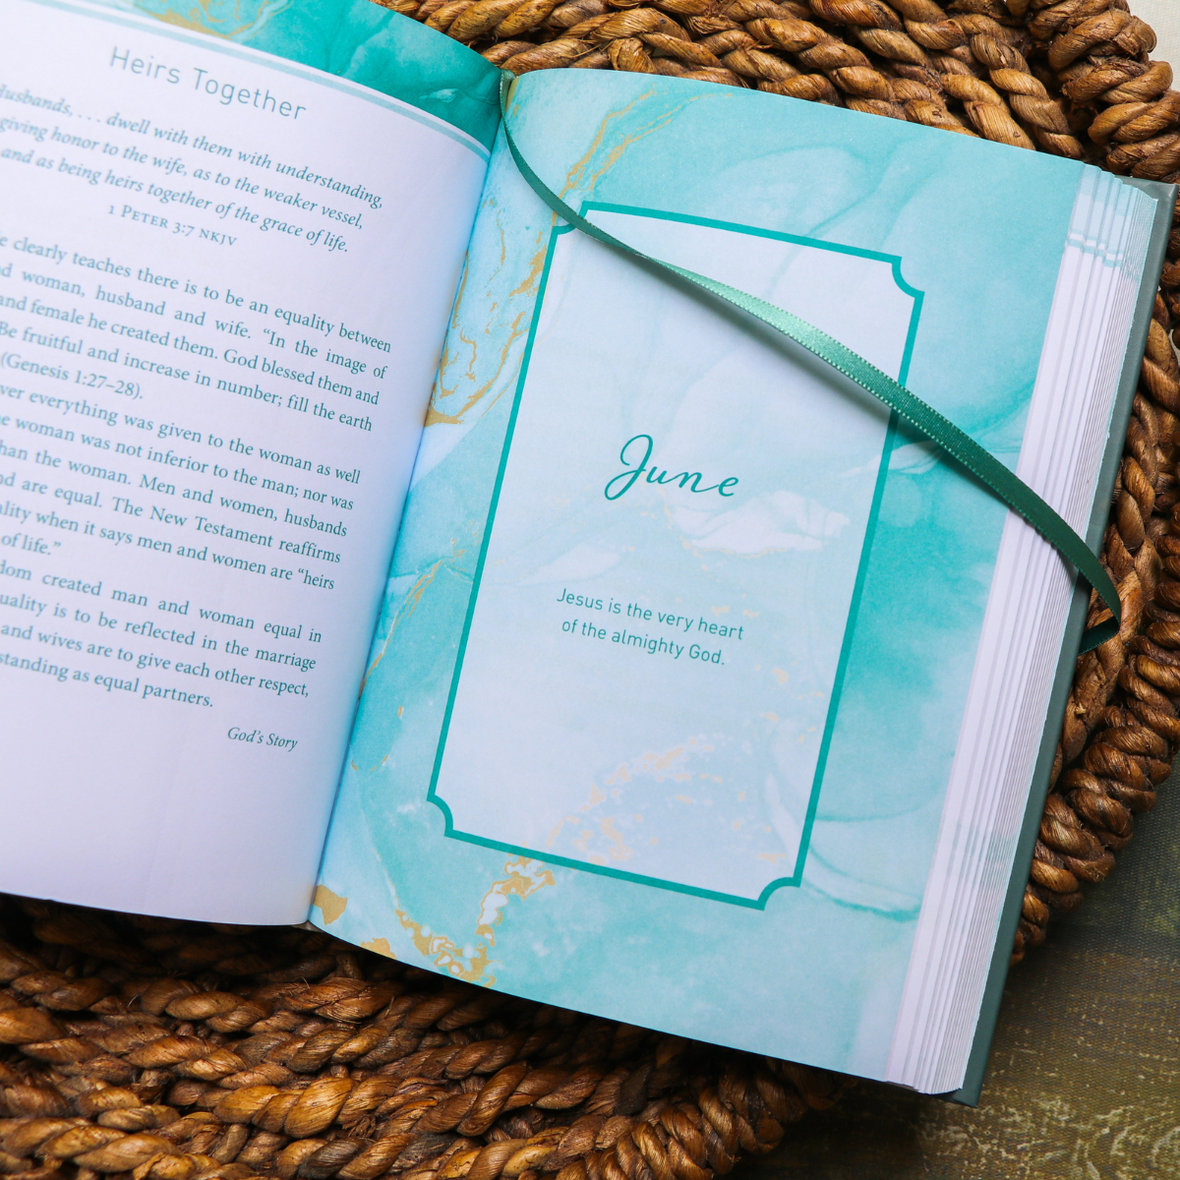 Heirs Together
Husbands, . . . dwell with them with understanding,
giving honor to the wife, as to the weaker vessel,
and as being heirs together of the grace of life.
1 Peter 3:7 NKJV
clearly teaches there is to be an equality between
woman, husband and wife. “In the image of
and female he created them. God blessed them and
Be fruitful and increase in number; fill the earth
(Genesis 1:27–28).
everything was given to the woman as well
woman was not inferior to the man; nor was
than the woman. Men and women, husbands
are equal. The New Testament reaffirms
when it says men and women are “heirs
of life.”
created man and woman equal in
is to be reflected in the marriage
and wives are to give each other respect,
as equal partners.
God’s Story
June
Jesus is the very heart
of the almighty God.